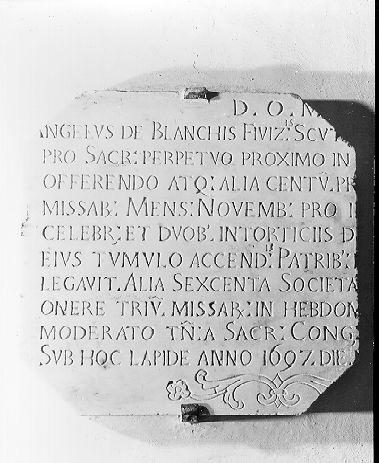 D. O. M
ANGELVS DE BLANCHIS FIVIZ:IS SCVT
PRO SACR: PERPETVO PROXIMO IN
OFFERENDO ATQ: ALIA CENTV̄. PR
MISSAR: MENS: NOVEMB: PRO
CELEBR: ET DVOB: INTORTICIIS D
EIVS TVMVLO ACCEND: PATRIB:IS
LEGAVIT. ALIA SEXCENTA SOCIETA
ONERE TRIV̄. MISSAR: IN HEBDOM
MODERATO TN̄: A SACR: CONG
SVB HOC LAPIDE ANNO 1697. DIE